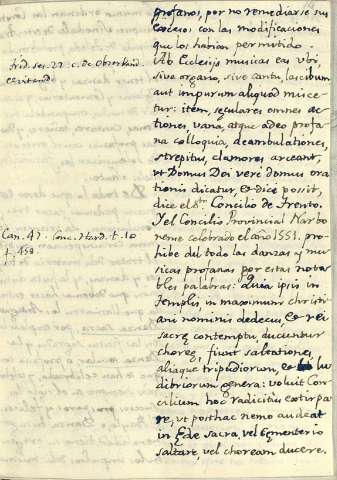 profanos, por no remediarse sus
excesos con las modificaciones
que los havian permitido.
Ab Ecclesijs musicas eas ubi,
trid. ses. 22. c. de Observand.
et evitand.
sive organo, sive cantu, lascibum
aut impurum aliquod misce-
tur: item, seculares omnes ac-
tiones, vana, atque adeo profa-
na colloquia, deambulationes,
strepitus, clamores arceant,
ut Domus Dei vere domus ora
tionis dicatur, et dice possit,
dice el Sto. Concilio de Trento.
Y el Concilio Provincial Narbo
Can. 47. Conc. Hard. t. 10
f. 459
nense celebrado el año 1551. pro-
hibe del todo las danzas y mu
sicas profanas por estas nota-
bles palabras: Quia ipsis in
templis in maximum christi
ani nominis dedecus, et rei
sacrę contemptu, ducuntur
choreę, fiunt saltationes,
aliaque tripudiorum, et lu
dibriorum genera: voluit Con-
cilium hoc radicitus extirpa
re, ut posthac nemo audeat
in Ęde sacra, vel cęmenterio
saltare, vel choream ducere.